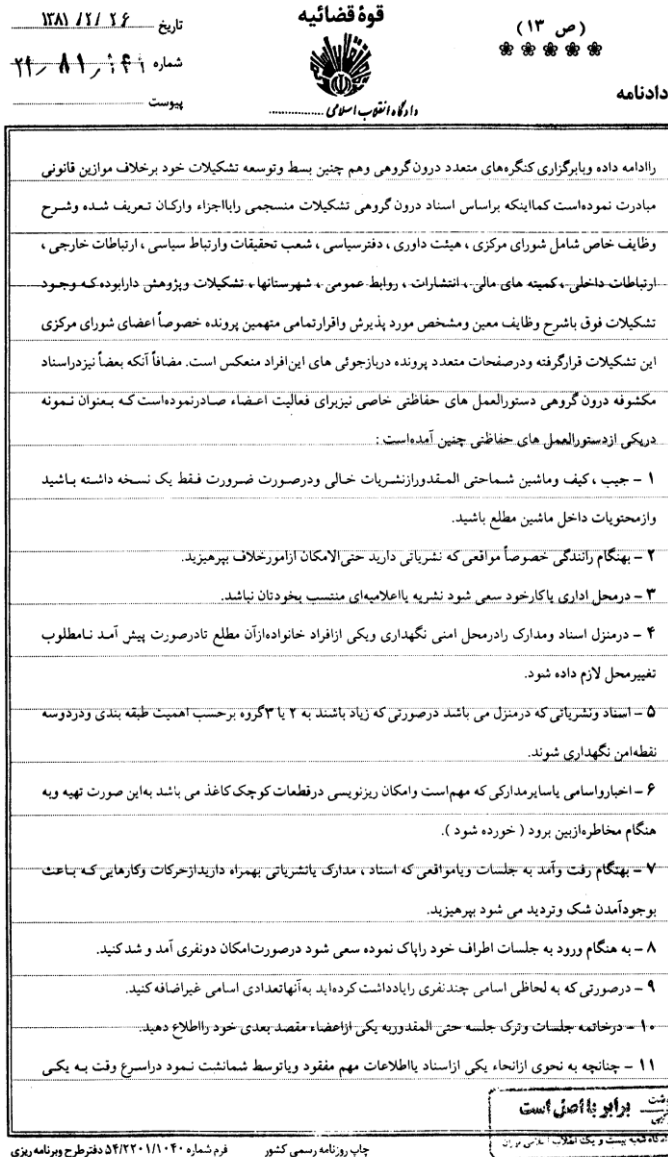 قوهٔ قضائیه
دادگاه انقلاب اسلامی
(ص ۱۳)
تاریخ ۱۳۸۱ /۲/ ۲۶
شماره
پیوست
دادنامه
راادامه داده وبابرگزاری کنگره‌های متعدد درون‌گروهی وهم چنین بسط وتوسعه تشکیلات خود برخلاف موازین قانونی
مبادرت نموده‌است کمااینکه براساس اسناد درون گروهی تشکیلات منسجمی رابااجزاء وارکان تعریف شده وشرح
وظایف خاص شامل شورای مرکزی ، هیئت داوری ، دفترسیاسی ، شعب تحقیقات وارتباط سیاسی ، ارتباطات خارجی ،
ارتباطات داخلی ،کمیته های مالی ، انتشارات ، روابط عمومی ، شهرستانها ، تشکیلات وپژوهش دارابوده‌که وجود
تشکیلات فوق باشرح وظایف معین ومشخص مورد پذیرش واقرارتمامی متهمین پرونده خصوصاً اعضای شورای مرکزی
این تشکیلات قرارگرفته ودرصفحات متعدد پرونده دربازجوئی های این‌افراد منعکس است. مضافاً آنکه بعضاً نیزدراسناد
مکشوفه درون گروهی دستورالعمل های حفاظتی خاصی نیزبرای فعالیت اعضاء صادرنموده‌است که بعنوان نمونه
دریکی ازدستورالعمل های حفاظتی چنین آمده‌است :
۱ – جیب ،کیف وماشین شماحتی المقدورازنشریات خالی ودرصورت ضرورت فقط یک نسخه داشته باشید
وازمحتویات داخل ماشین مطلع باشید.
۲ – بهنگام رانندگی خصوصاً مواقعی که نشریاتی دارید حتی‌الامکان ازامورخلاف بپرهیزید.
۳ – درمحل اداری یاکارخود سعی شود نشریه یااعلامیه‌ای منتسب بخودتان نباشد.
۴ – درمنزل اسناد ومدارک رادرمحل امنی نگهداری ویکی ازافراد خانواده‌ازآن مطلع تادرصورت پیش آمد نامطلوب
تغییرمحل لازم داده شود.
۵ – اسناد ونشریاتی که درمنزل می باشد درصورتی که زیاد باشند به ۲ یا ۳گروه برحسب اهمیت طبقه بندی ودردوسه
نقطه‌امن نگهداری شوند.
۶ – اخبارواسامی یاسایرمدارکی که مهم‌است وامکان ریزنویسی درقطعات کوچک کاغذ می باشد به‌این صورت تهیه وبه
هنگام مخاطره‌ازبین برود ( خورده شود ).
۷ – بهنگام رفت وآمد به جلسات ویامواقعی که اسناد ، مدارک یانشریاتی بهمراه داریدازحرکات وکارهایی که باعث
بوجودآمدن شک وتردید می شود بپرهیزید.
۸ – به هنگام ورود به جلسات اطراف خود راپاک نموده سعی شود درصورت‌امکان دونفری آمد و شد کنید.
۹ – درصورتی که به لحاظی اسامی چندنفری رایادداشت کرده‌اید به‌آنهاتعدادی اسامی غیراضافه کنید.
۱۰ – درخاتمه جلسات وترک جلسه حتی المقدوربه یکی ازاعضاء مقصد بعدی خود رااطلاع دهید.
۱۱ – چنانچه به نحوی ازانحاء یکی ازاسناد یااطلاعات مهم مفقود ویاتوسط شمانشت نمود دراسرع وقت به یکی
برابر با اصل است
چاپ روزنامه رسمی کشور
فرم شماره ۵۴/۲۲۰۱/۱۰۴۰ دفترطرح وبرنامه‌ریزی